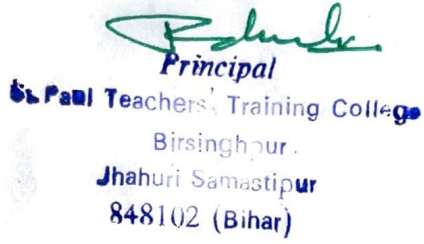 Principal
St. Paul Teachers' Training College
Birsinghpur
Jhahuri Samastipur
848102 (Bihar)